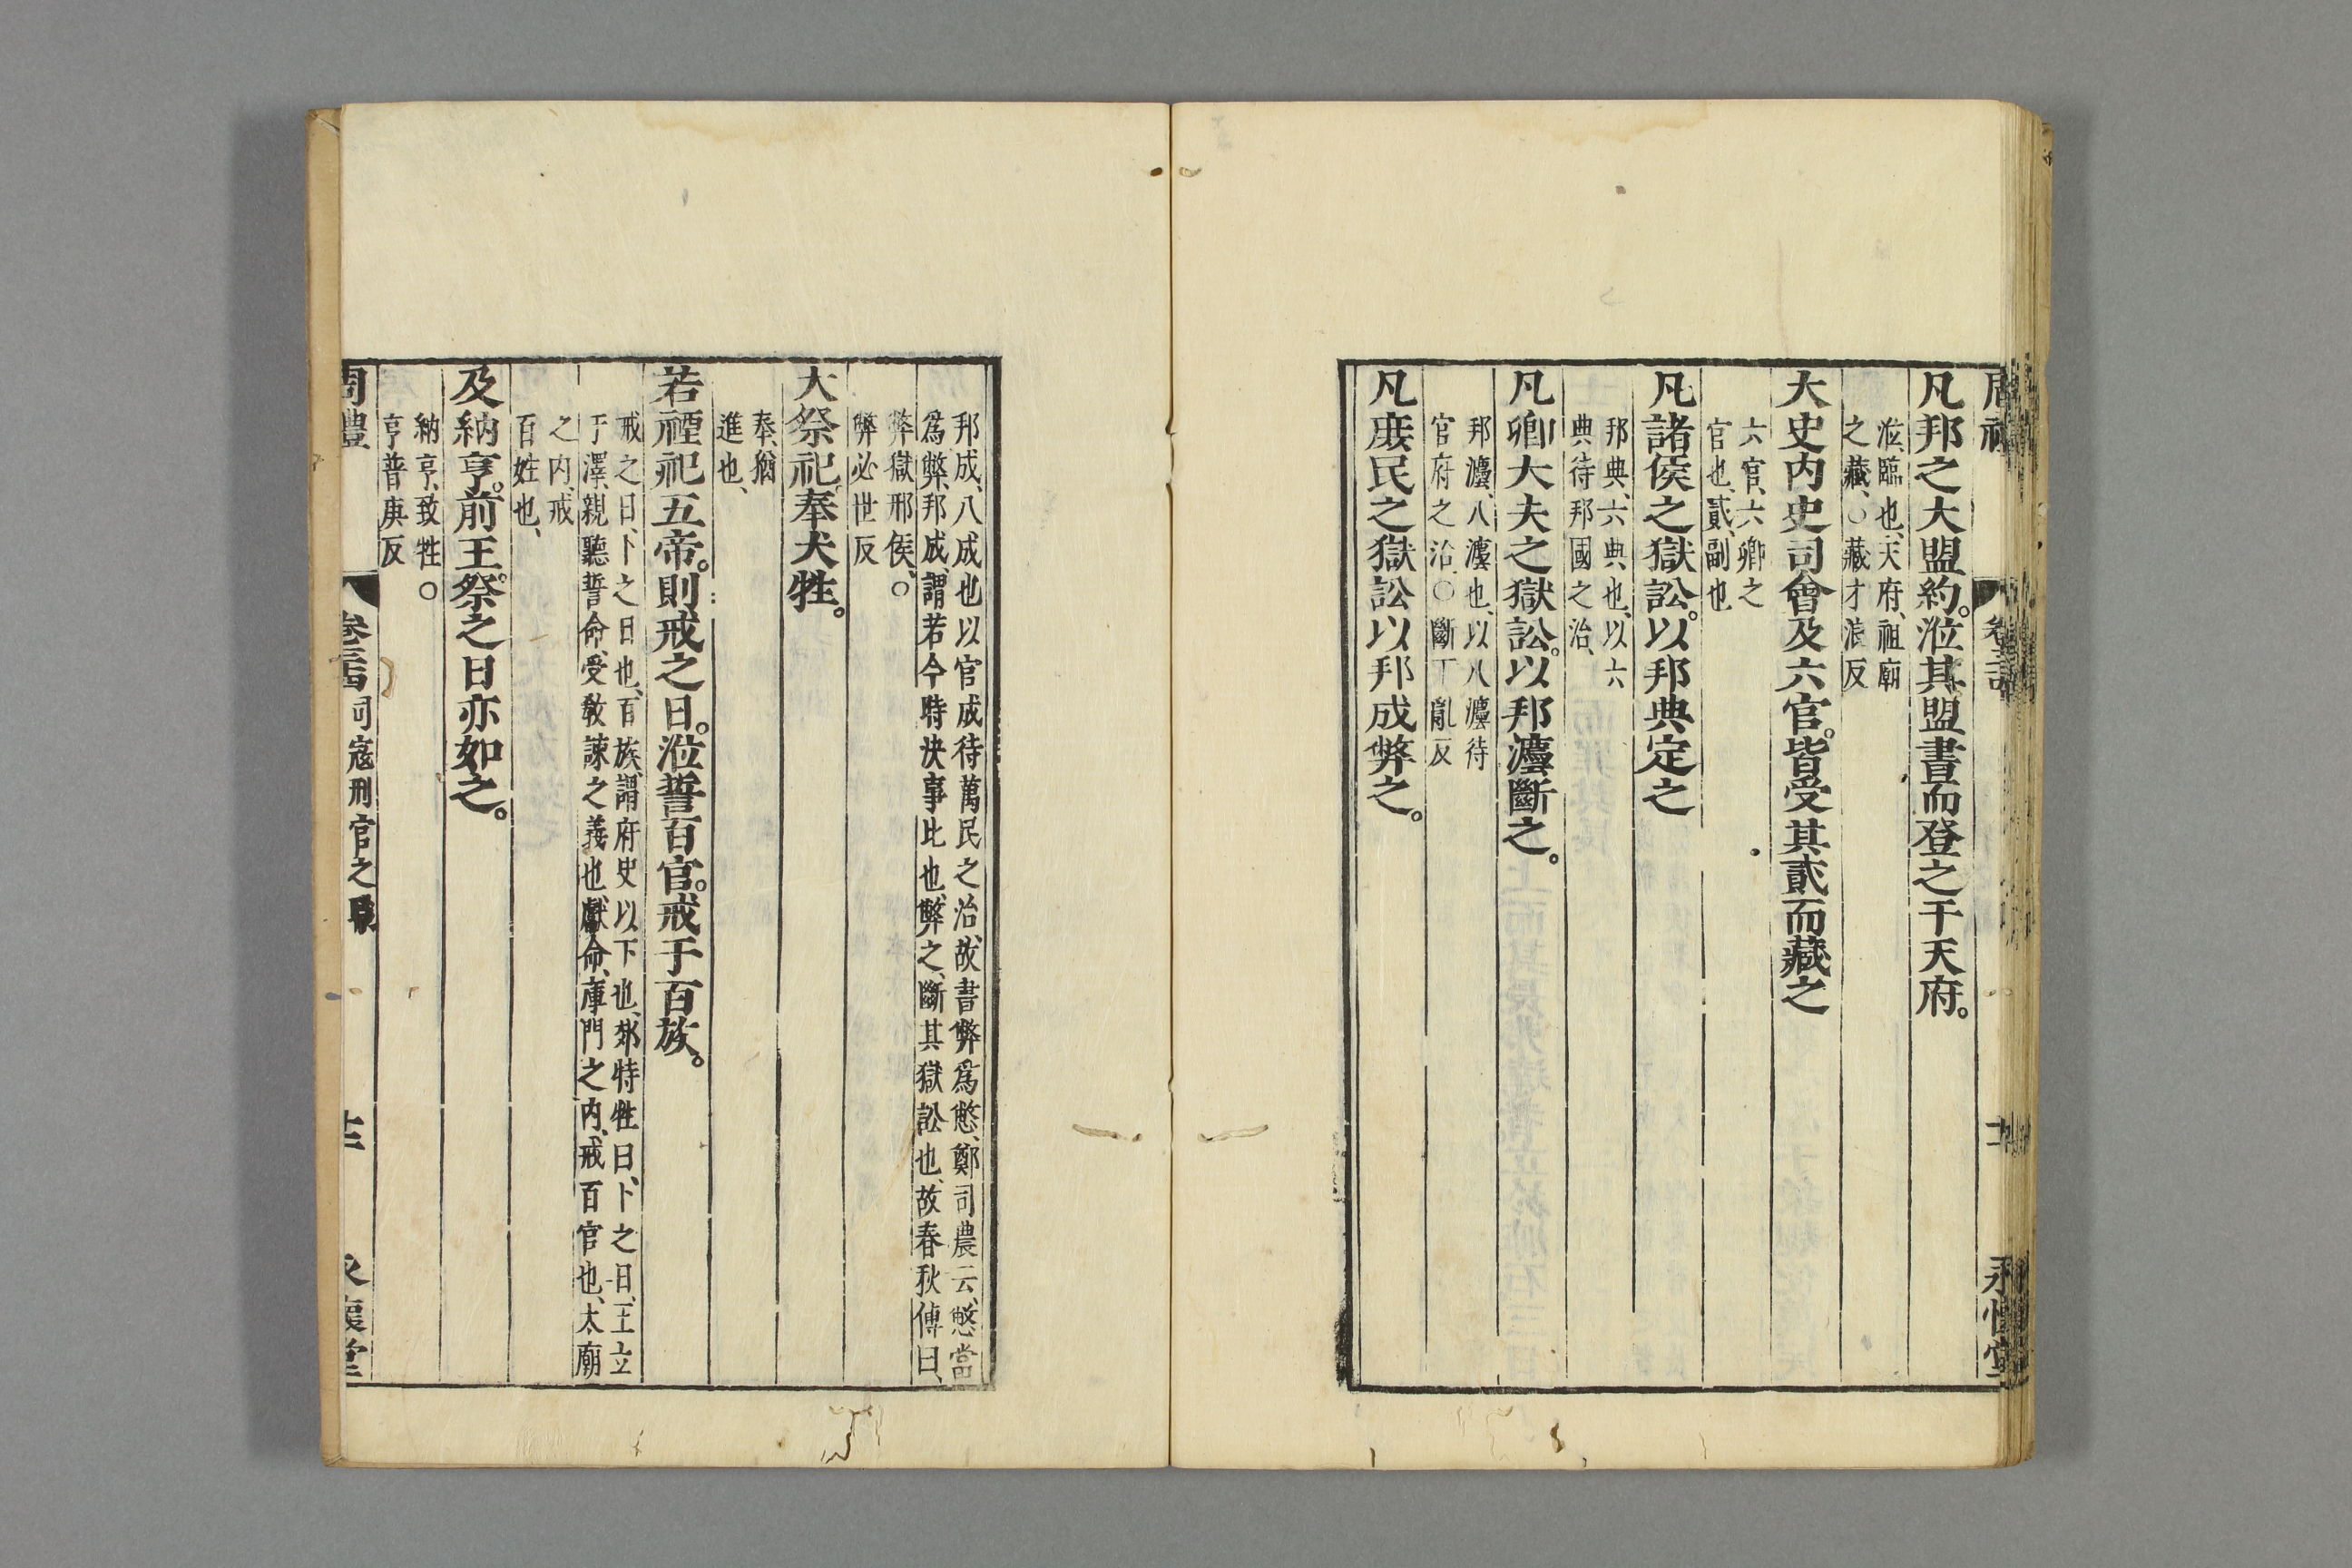 凡邦之大盟約。涖其盟書而登之于天府。
涖、臨也、天府、祖廟
之藏、○藏才浪反
大史內史司會及六官。皆受其貳而藏之
六官、六卿之
官也、貳、副也
凡諸侯之獄訟。以邦典定之
邦典、六典也、以六
典待邦國之治、
凡卿大夫之獄訟。以邦灋斷之。
邦灋、八灋也、以八灋待
官府之治、○斷丁亂反
凡庶民之獄訟以邦成弊之。
邦成、八成也以官成待萬民之治、故書弊爲憋、鄭司農云、憋當
爲弊、邦成、謂若今時決事比也、弊之、斷其獄訟也、故春秋傳曰、
弊獄邢侯、○
弊必世反
大祭祀奉犬牲。
奉、猶
進也、
若禋祀五帝。則戒之日。涖誓百官。戒于百族。
戒之日、卜之日也、百族、謂府史以下也、郊特牲曰、卜之日、王立
于澤、親聽誓命、受教諫之義也、獻命、庫門之內、戒百官也、太廟
之內、戒
百姓也、
及納亨。前王。祭之日亦如之。
納亨、致牲○
亨普庚反
周禮 卷三四 司寇刑官之職 十二 永懷堂